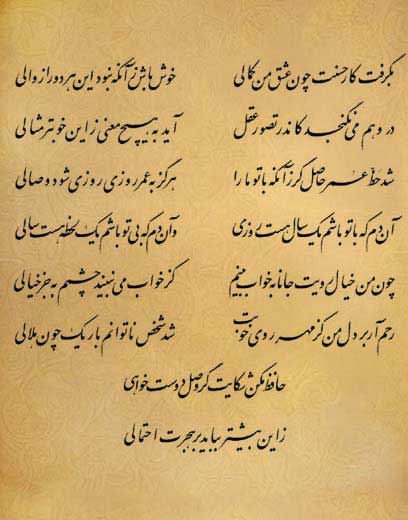 بگرفت کار حسنت چون عشق من کمالی خوش باش زآنکه نبود این هر دو را زوالی
در وهم می نگنجد کاندر تصور عقل آید به هیچ معنی زاین خوبتر مثالی
شد حظّ عمر حاصل گر زآنکه با تو ما را هرگز به عمر روزی روزی شود وصالی
آن دم که با تو باشم یک سال هست روزی وآن دم که بی تو باشم یک لحظه هست سالی
چون من خیال رویت جانا به خواب بینم کز خواب می نبیند چشمم به جز خیالی
رحم آر بر دل من کز مهر روی خوبت شد شخص ناتوانم باریک چون هلالی
حافظ مکن شکایت گر وصل دوست خواهی
زاین بیشتر بباید بر هجرت احتمالی